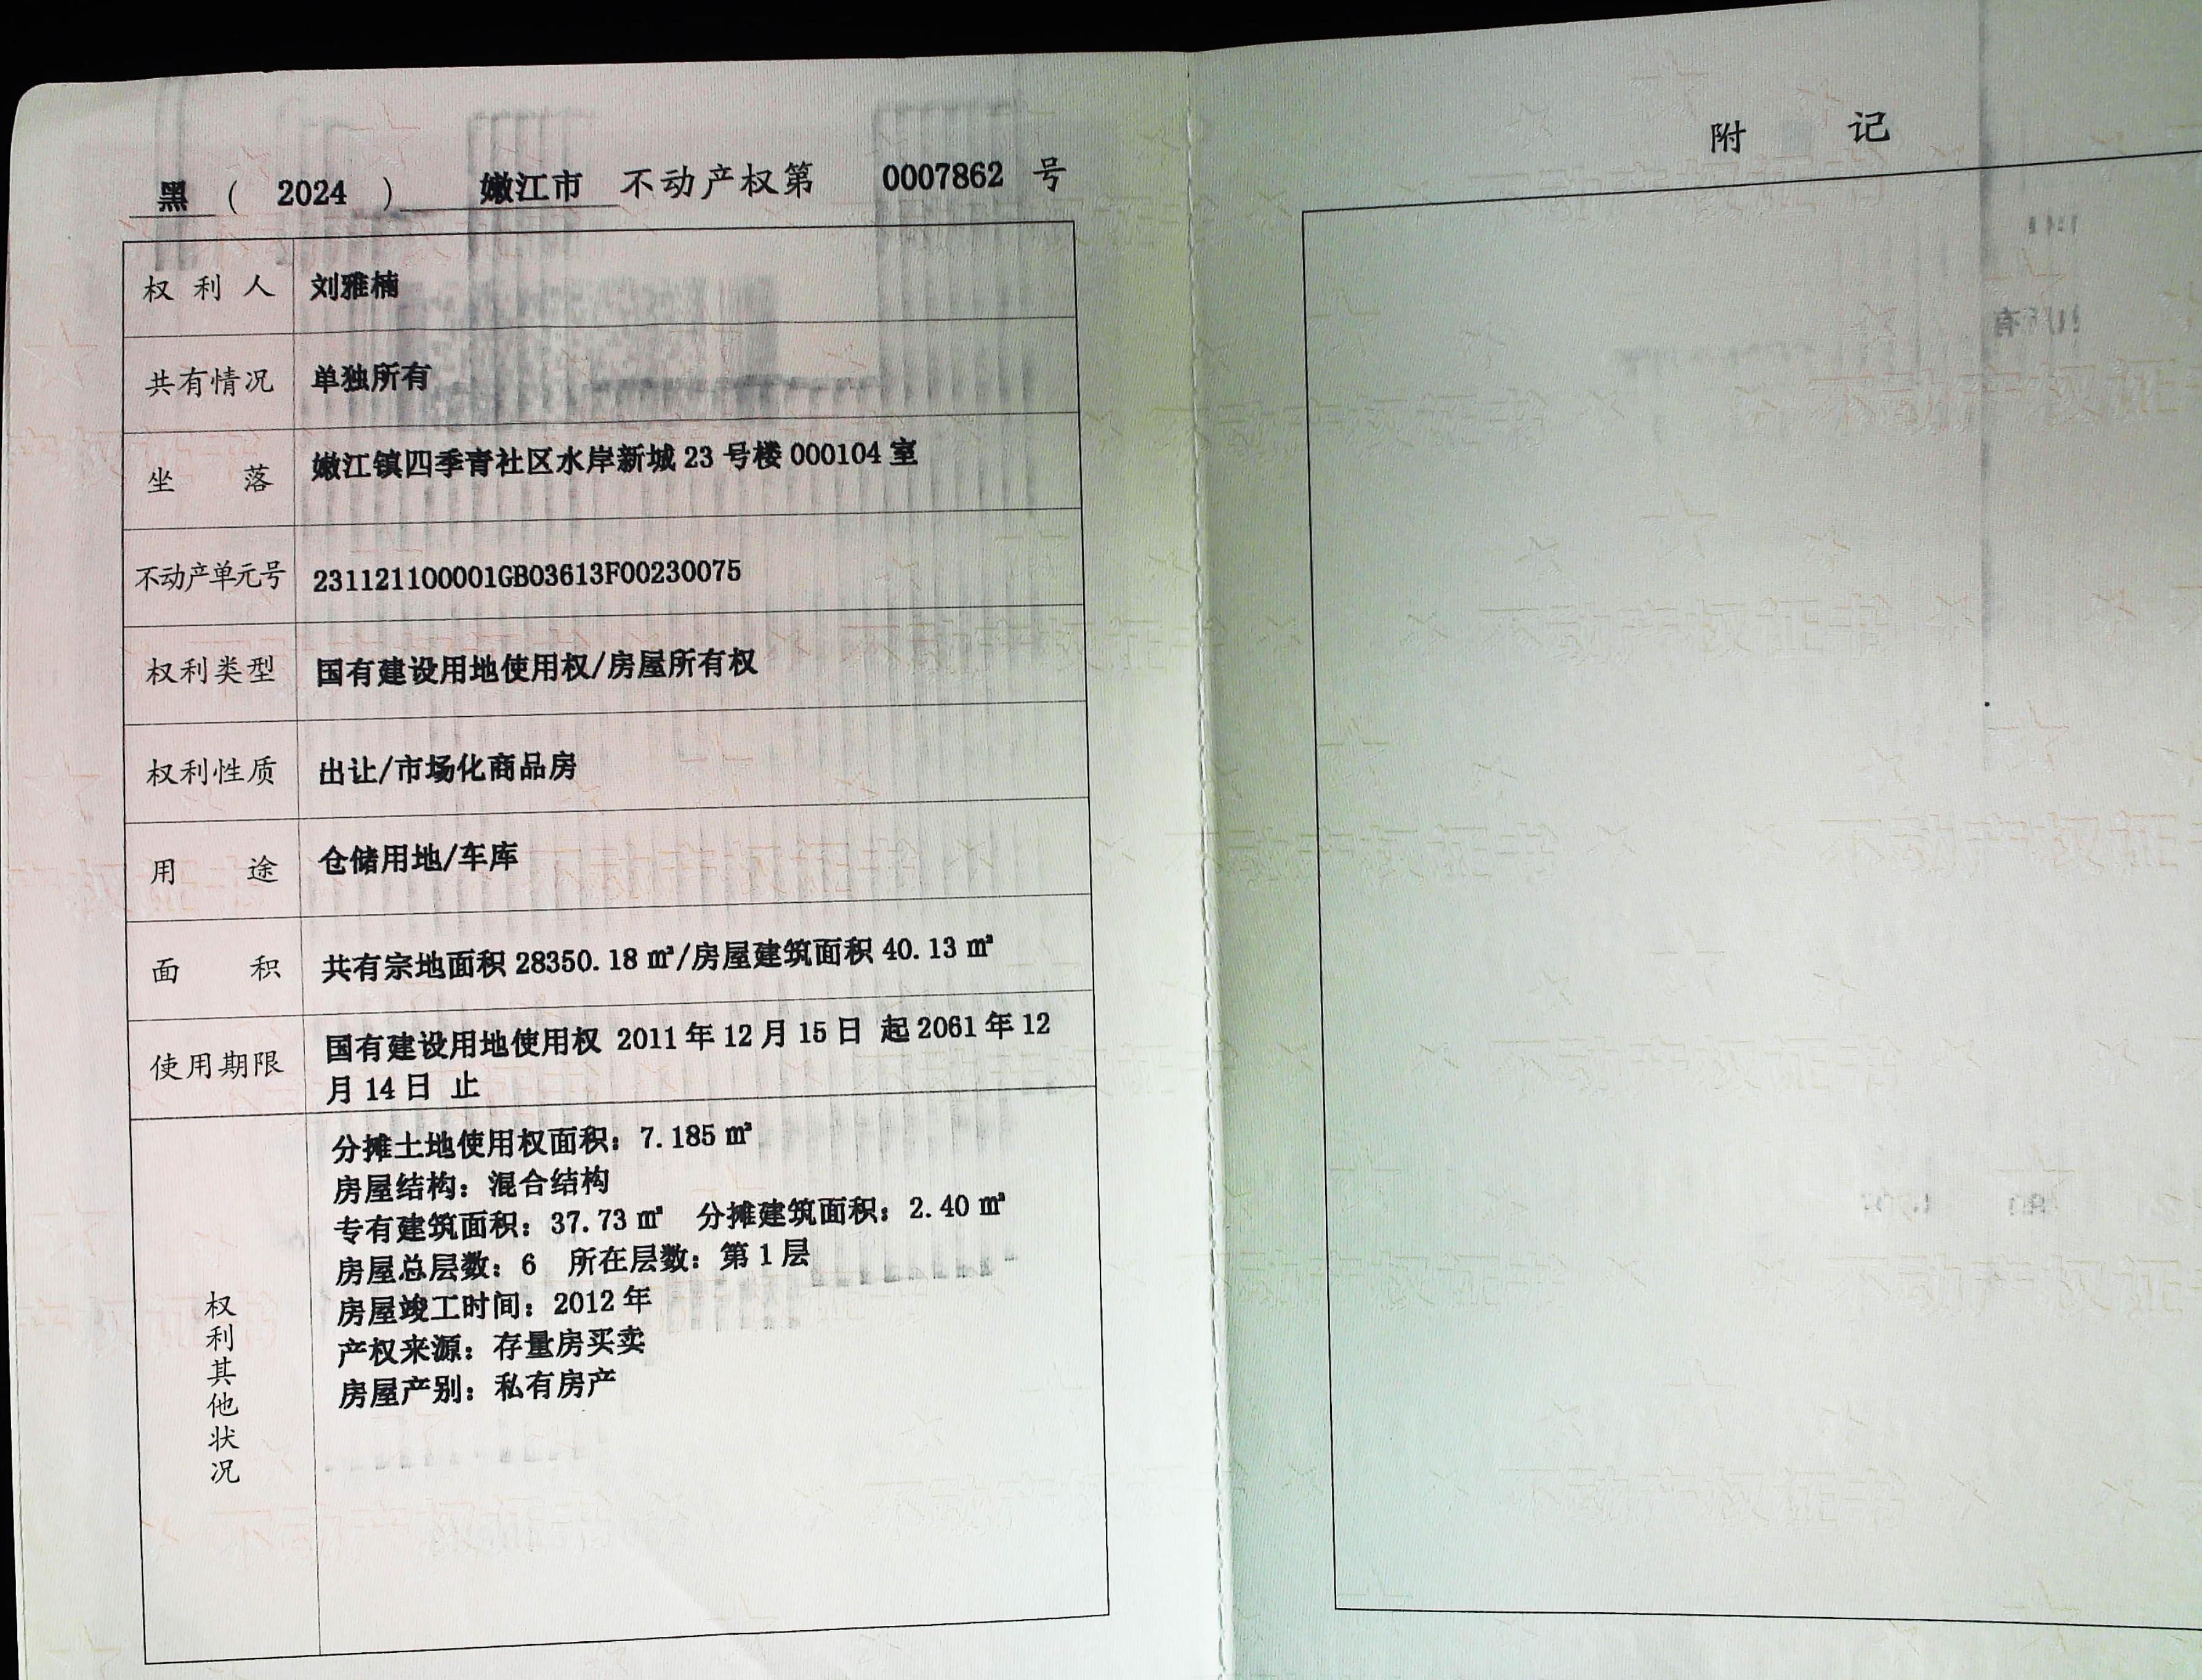 黑 ( 2024 ) 嫩江市 不动产权第 0007862 号
权利人 刘雅楠
共有情况 单独所有
坐落 嫩江镇四季青社区水岸新城 23 号楼 000104 室
不动产单元号 231121100001GB03613F00230075
权利类型 国有建设用地使用权/房屋所有权
权利性质 出让/市场化商品房
用途 仓储用地/车库
面积 共有宗地面积 28350.18 ㎡/房屋建筑面积 40.13 ㎡
使用期限 国有建设用地使用权 2011 年 12 月 15 日 起 2061 年 12
月 14 日 止
权利其他状况
分摊土地使用权面积：7.185 ㎡
房屋结构：混合结构
专有建筑面积：37.73 ㎡ 分摊建筑面积：2.40 ㎡
房屋总层数：6 所在层数：第 1 层
房屋竣工时间：2012 年
产权来源：存量房买卖
房屋产别：私有房产
附记